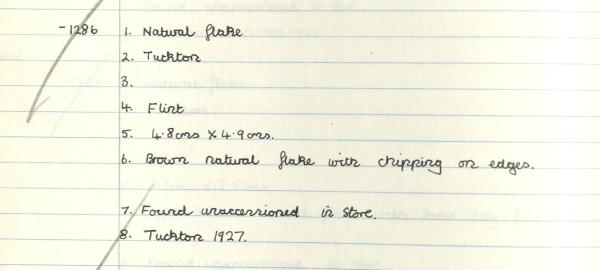 -1286 1. Natural flake
2. Tuckton
3.
4. Flint
5. 4.8cms X 4.9cms.
6. Brown natural flake with chipping on edges.
7. Found unaccessioned in store.
8. Tuckton 1927.